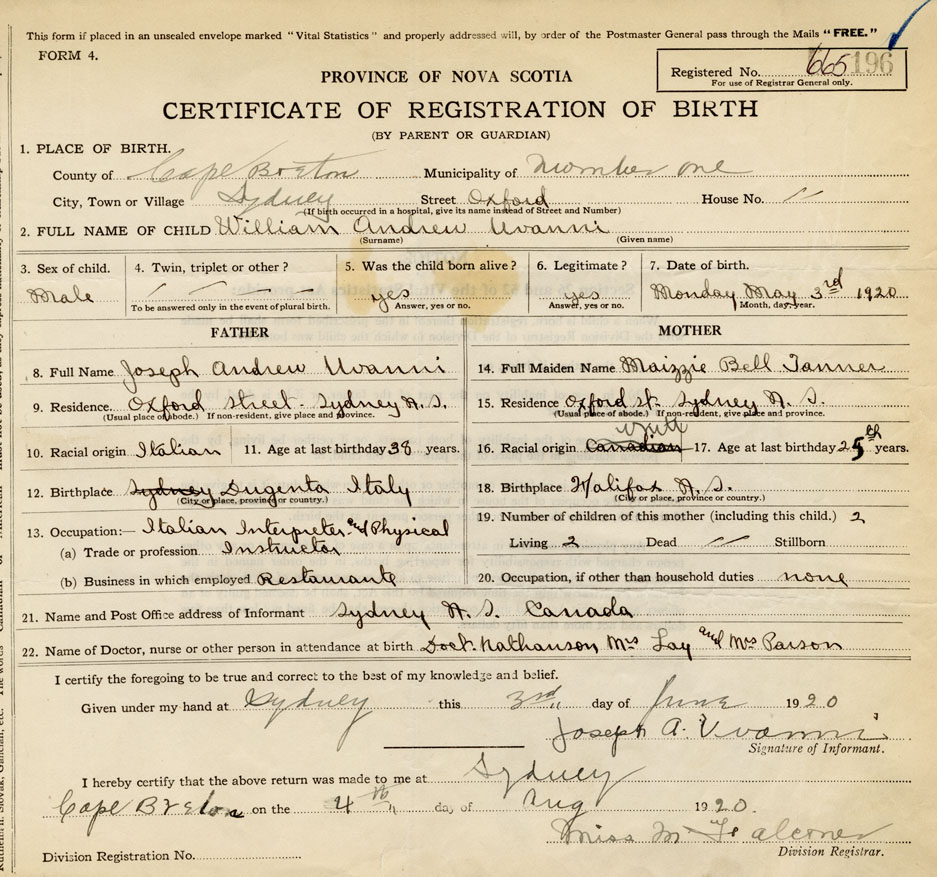 This form if placed in an unsealed envelope marked "Vital Statistics" and properly addressed will, by order of the Postmaster General pass through the Mails "FREE."
FORM 4.
Registered No. 665 196
For use of Registrar General only.
PROVINCE OF NOVA SCOTIA
CERTIFICATE OF REGISTRATION OF BIRTH
(BY PARENT OR GUARDIAN)
1. PLACE OF BIRTH.
County of Cape Breton Municipality of Number one
City, Town or Village Sydney Street Oxford House No. //
(If birth occurred in a hospital, give its name instead of Street and Number)
2. FULL NAME OF CHILD William Andrew Uvanni
(Surname) (Given name)
3. Sex of child. 4. Twin, triplet or other? 5. Was the child born alive? 6. Legitimate? 7. Date of birth.
Male / / yes yes Monday May 3rd 1920
To be answered only in the event of plural birth. Answer, yes or no. Answer, yes or no. Month, day, year.
FATHER MOTHER
8. Full Name Joseph Andrew Uvanni 14. Full Maiden Name Maizzie Bell Tanner
9. Residence. Oxford Street- Sydney N. S. 15. Residence Oxford St. Sydney N. S.
(Usual place of abode.) If non-resident, give place and province. (Usual place of abode.) If non-resident, give place and province.
10. Racial origin Italian 11. Age at last birthday 38 years. 16. Racial origin Canadian 17. Age at last birthday 25th years.
12. Birthplace Sydney Dugenta Italy 18. Birthplace Halifax N. S.
(City or place, province or country.) (City or place, province or country.)
13. Occupation:— Italian Interpreter and Physical 19. Number of children of this mother (including this child.) 2
(a) Trade or profession Instructor Living 2 Dead // Stillborn
(b) Business in which employed Restaurante 20. Occupation, if other than household duties none
21. Name and Post Office address of Informant Sydney N. S. Canada
22. Name of Doctor, nurse or other person in attendance at birth Doct. Nathanson Mrs Lay and Mrs Parson
I certify the foregoing to be true and correct to the best of my knowledge and belief.
Given under my hand at Sydney this 3rd day of June 1920
Joseph A. Uvanni
Signature of Informant.
I hereby certify that the above return was made to me at Sydney
Cape Breton on the 4th day of Aug 1920.
Miss M Falconer
Division Registrar.
Division Registration No.